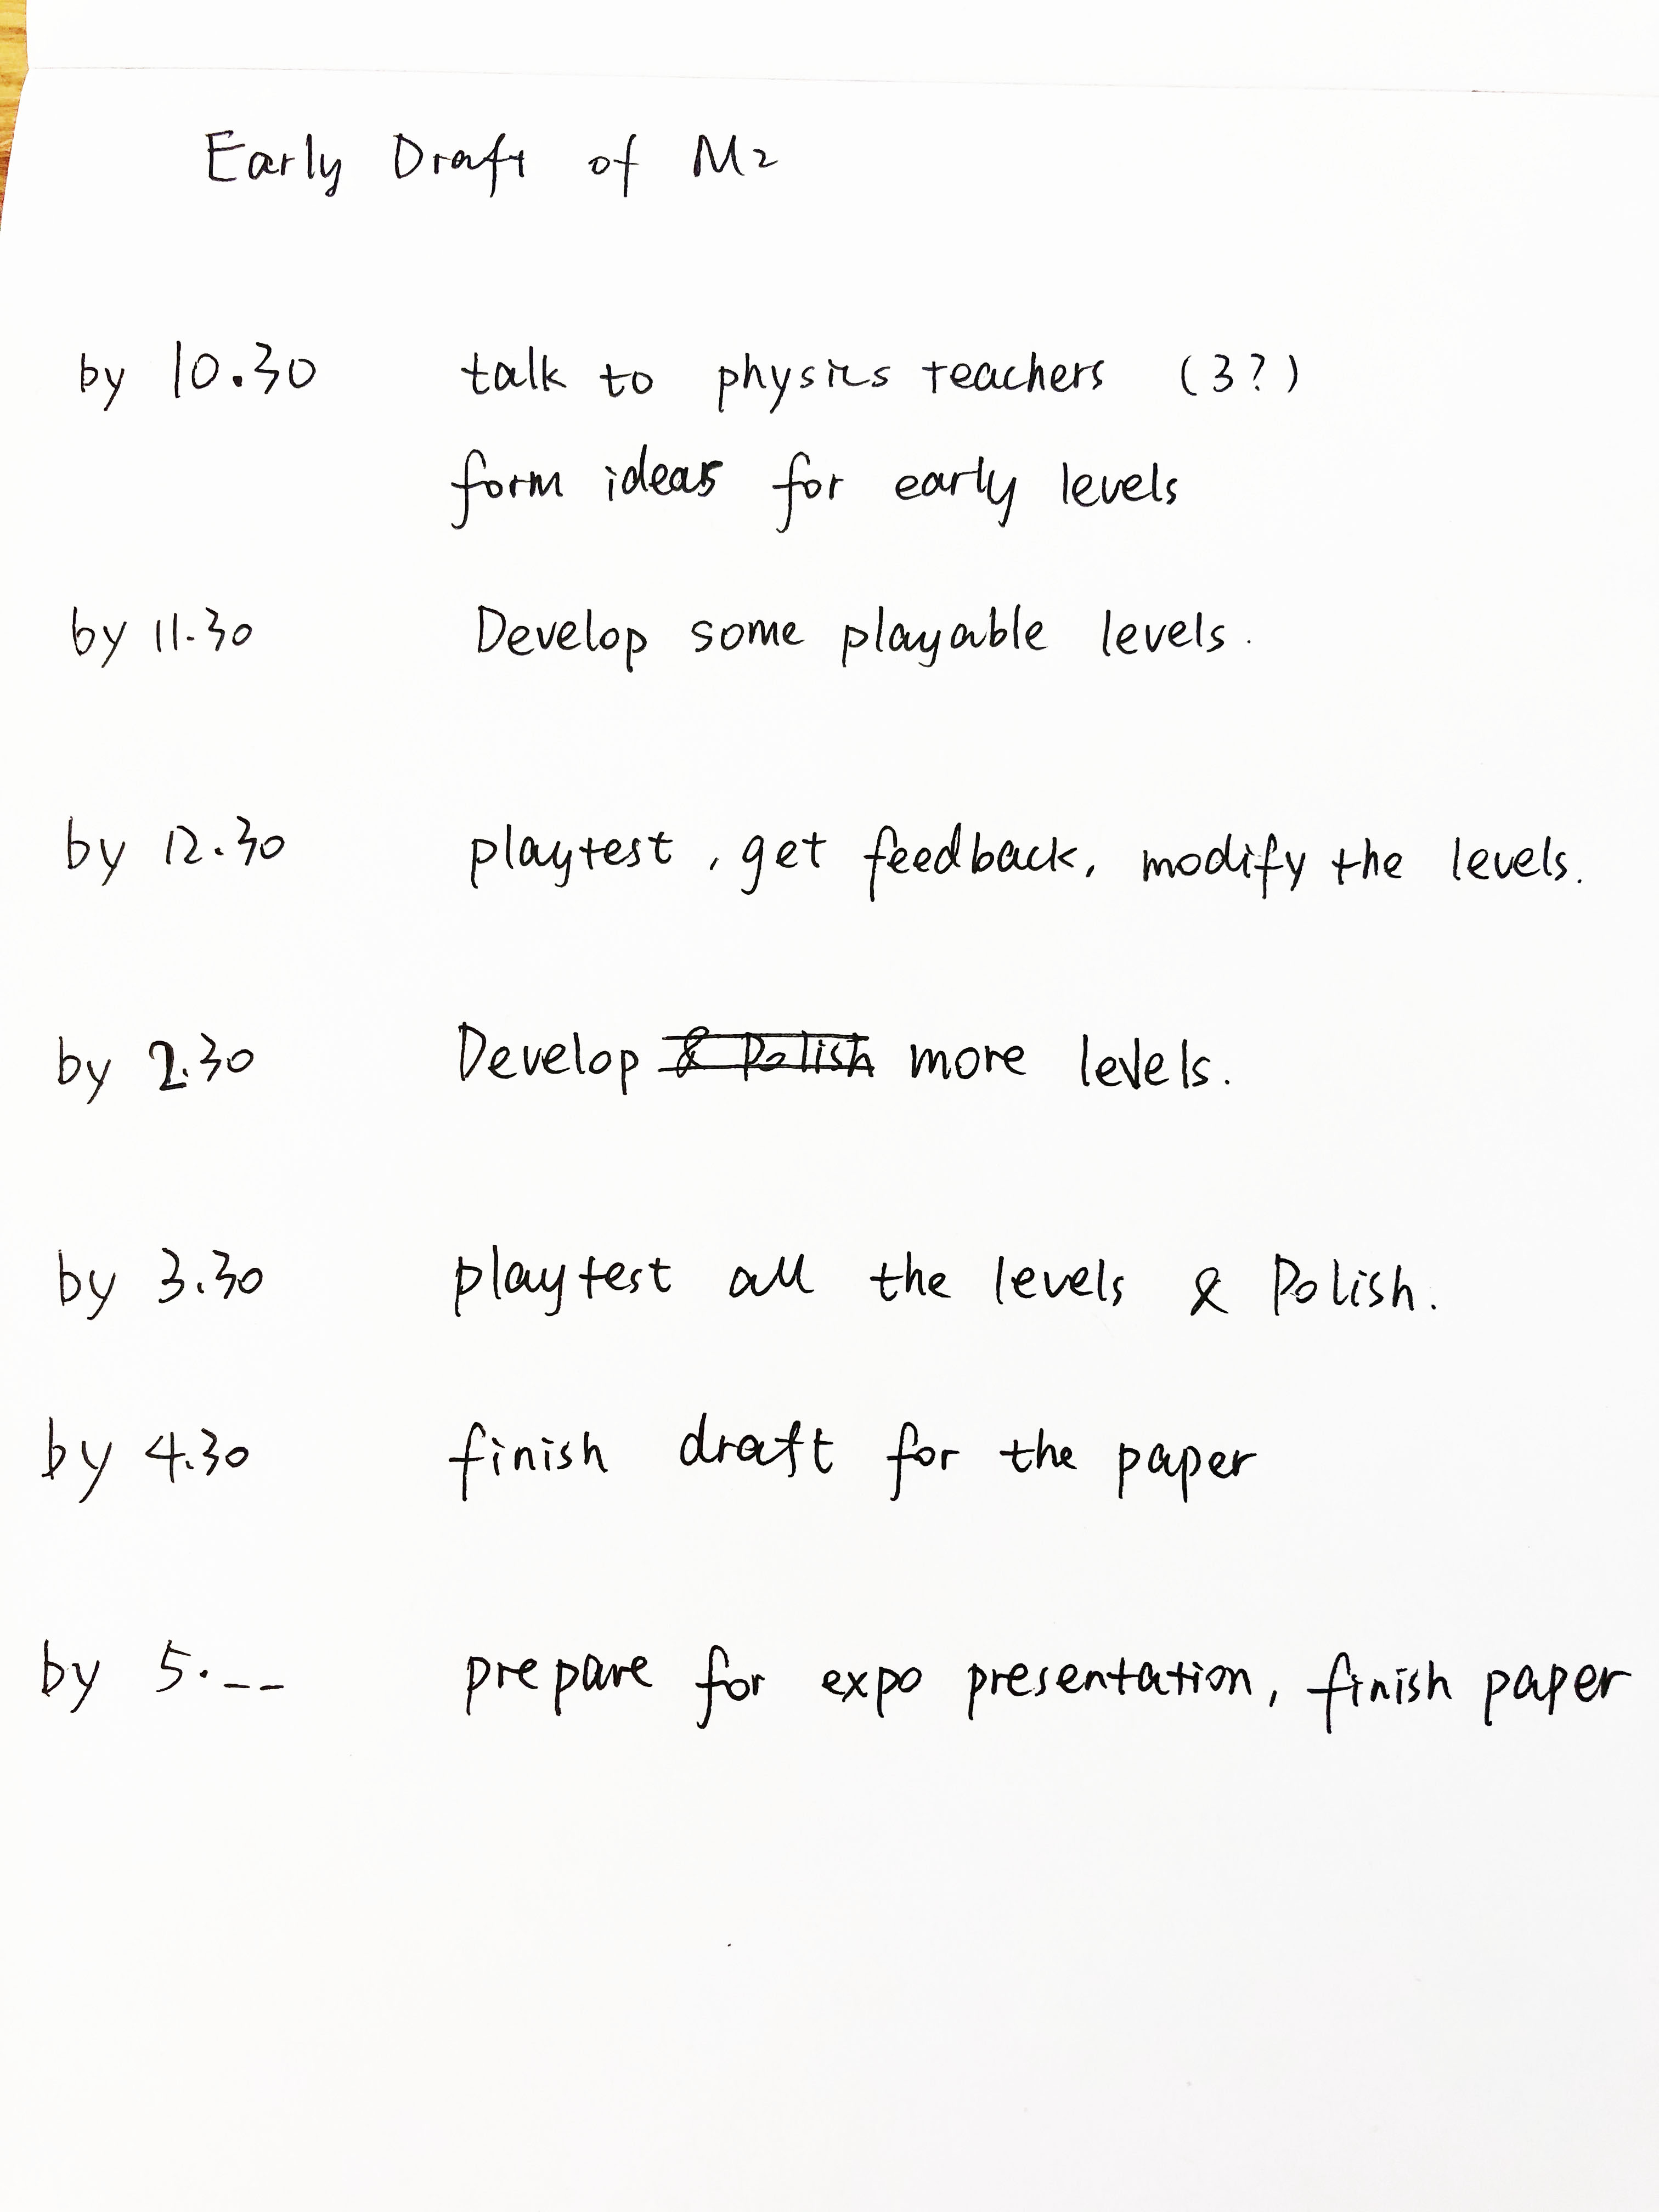 Early Draft of M2
by 10.30 talk to physics teachers (3?)
form ideas for early levels
by 11.30 Develop some playable levels.
by 12.30 playtest, get feedback, modify the levels.
by 2.30 Develop & Polish more levels.
by 3.30 playtest all the levels & Polish.
by 4.30 finish draft for the paper
by 5.-- prepare for expo presentation, finish paper